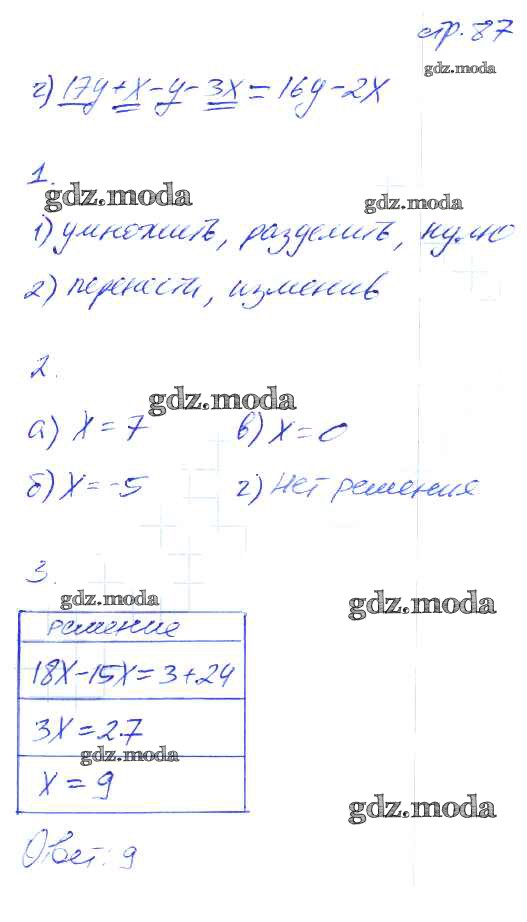 стр. 87
gdz.moda
г) 17y+x-y-3x=16y-2x
1.
gdz.moda
gdz.moda
1) умножить, разделить, нулю
2) перенести, изменив
2.
gdz.moda
а) x=7 в) x=0
б) x=-5 г) Нет решения
3.
gdz.moda
gdz.moda
решение
18x-15x=3+24
3x=27
gdz.moda
x=9
gdz.moda
Ответ: 9